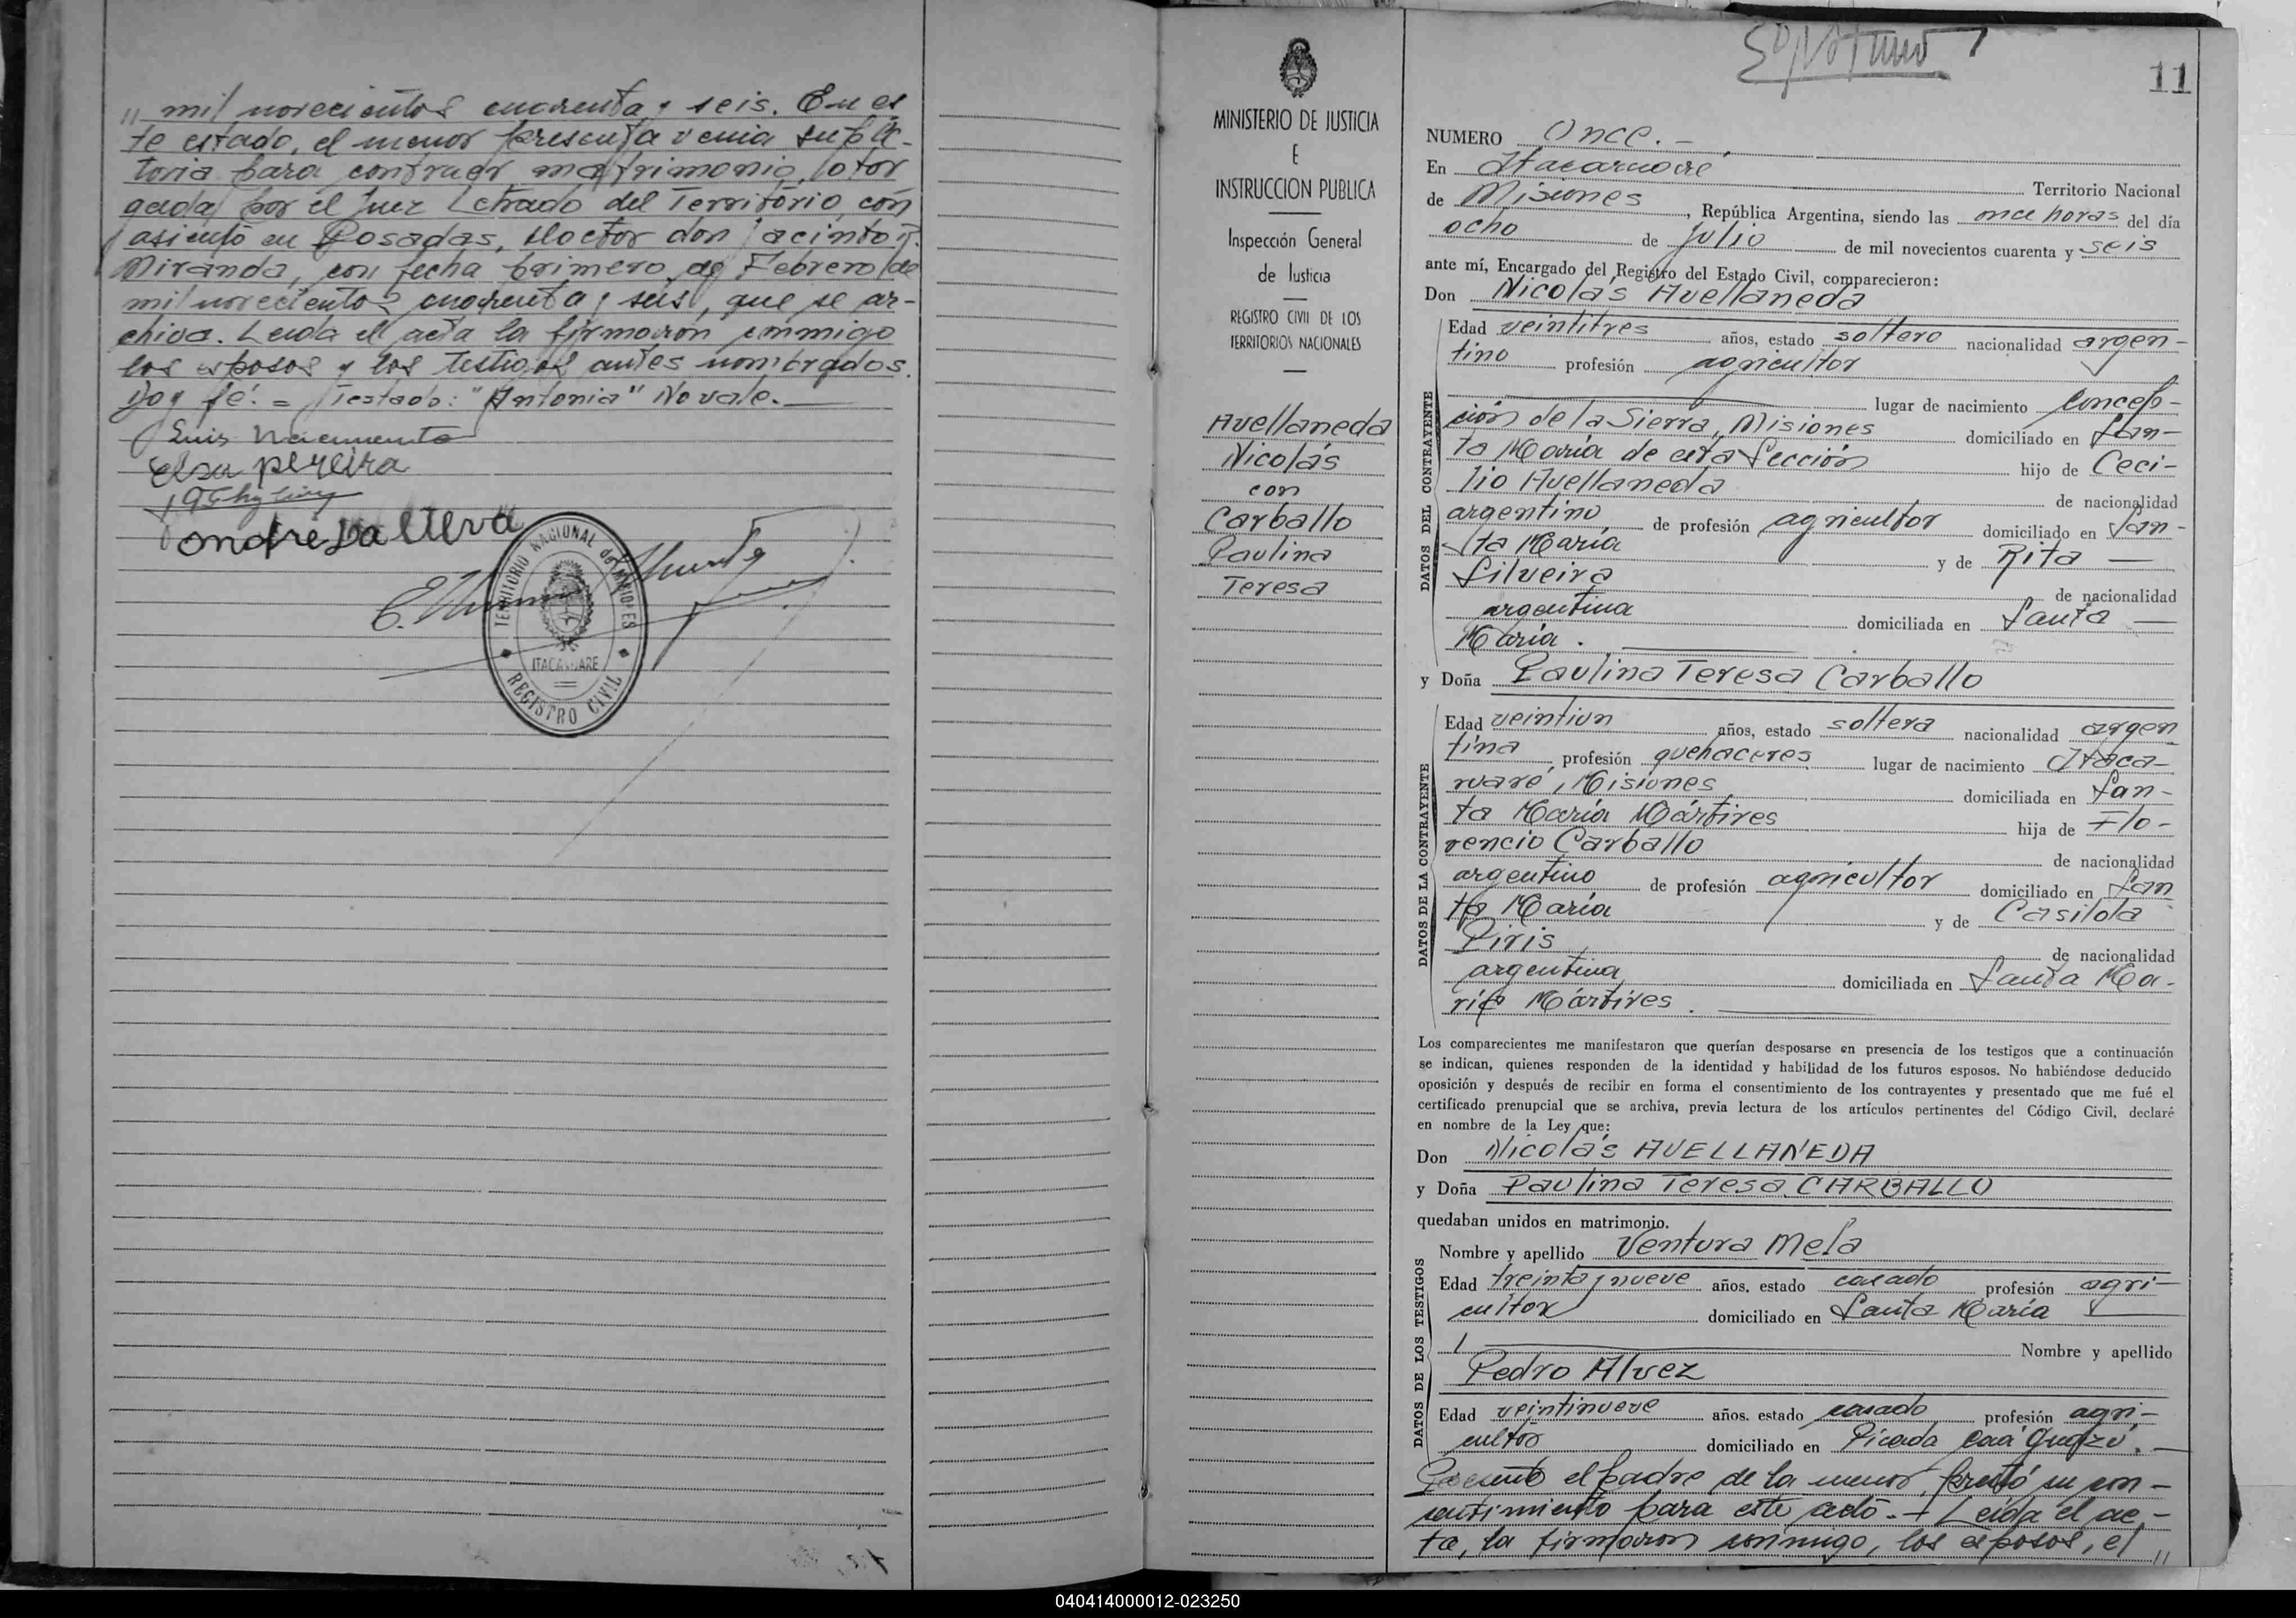 " mil novecientos cuarenta y seis. En es
te estado, el menor presenta venia suple-
toria para contraer matrimonio, otor
gada por el Juez Letrado del Territorio, con
asiento en Posadas, Doctor don Jacinto R.
Miranda, con fecha primero de Febrero de
mil novecientos cuarenta y seis, que se ar-
chiva. Leida el acta la firmaron conmigo
los esposos y los testigos antes nombrados.
Doy fé: = Testado: "Antonia" No vale.
Luis Nacimento
Elsa pereira
TERRITORIO NACIONAL de MISIONES
ITACARUARE
REGISTRO CIVIL
MINISTERIO DE JUSTICIA
E
INSTRUCCION PUBLICA
Inspección General
de Justicia
REGISTRO CIVIL DE LOS
TERRITORIOS NACIONALES
Avellaneda
Nicolás
con
Carballo
Paulina
Teresa
11
NUMERO Once. -
En Itacaruaré Territorio Nacional
de Misiones, República Argentina, siendo las once horas del día
ocho de Julio de mil novecientos cuarenta y seis
ante mí, Encargado del Registro del Estado Civil, comparecieron:
Don Nicolás Avellaneda
DATOS DEL CONTRAYENTE
Edad veintitres años, estado soltero nacionalidad argen-
tino profesión agricultor
lugar de nacimiento Concep-
ción de la Sierra, Misiones domiciliado en San-
ta María de esta Sección hijo de Ceci-
lio Avellaneda de nacionalidad
argentino, de profesión agricultor domiciliado en San-
ta María y de Rita
Silveira de nacionalidad
argentina domiciliada en Santa
María.
y Doña Paulina Teresa Carballo
DATOS DE LA CONTRAYENTE
Edad veintiun años, estado soltera nacionalidad argen
tina, profesión quehaceres lugar de nacimiento Itaca-
ruaré, Misiones domiciliada en San-
ta María Mártires hija de Flo-
rencio Carballo de nacionalidad
argentino de profesión agricultor domiciliado en San
ta María y de Casilda
Piris de nacionalidad
argentina domiciliada en Santa Ma-
ría Mártires.
Los comparecientes me manifestaron que querían desposarse en presencia de los testigos que a continuación
se indican, quienes responden de la identidad y habilidad de los futuros esposos. No habiéndose deducido
oposición y después de recibir en forma el consentimiento de los contrayentes y presentado que me fué el
certificado prenupcial que se archiva, previa lectura de los artículos pertinentes del Código Civil, declaré
en nombre de la Ley que:
Don Nicolás AVELLANEDA
y Doña Paulina Teresa CARBALLO
quedaban unidos en matrimonio.
DATOS DE LOS TESTIGOS
Nombre y apellido Ventura Mela
Edad treinta y nueve años, estado casado profesión agri-
cultor domiciliado en Santa María
Nombre y apellido
Pedro Alvez
Edad veintinueve años. estado casado profesión agri-
cultor domiciliado en Picada Caá Guazú.
Presente el padre de la menor, prestó su con-
sentimiento para este acto. - Leida el ac-
ta, la firmaron conmigo, los esposos, el "
040414000012-023250